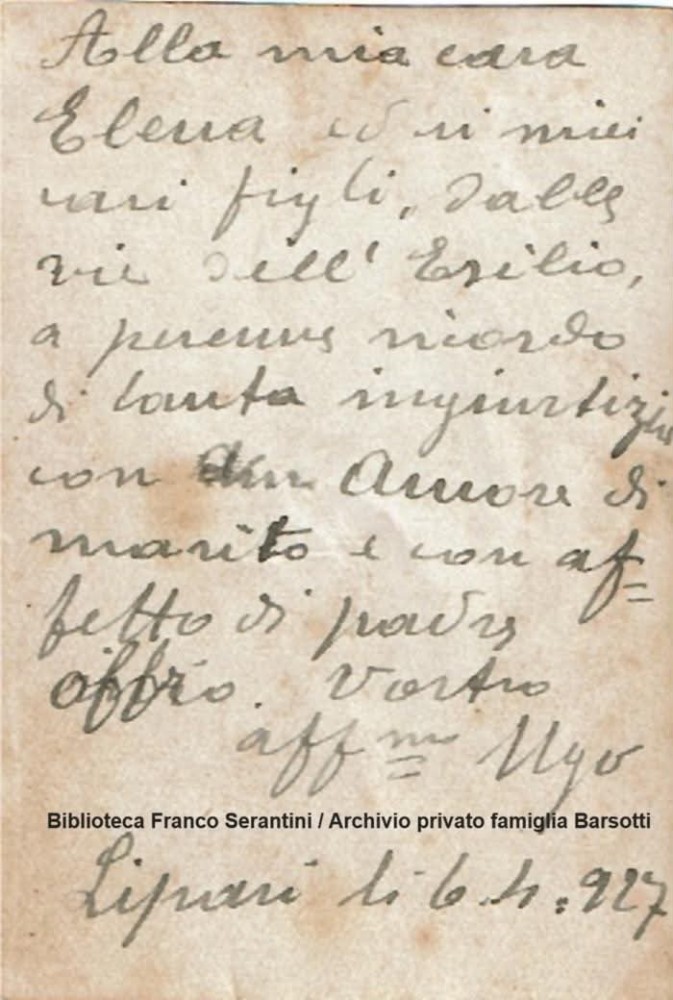 Alla mia cara
Elena ed ai miei
cari figli, dalle
vie dell' Esilio,
a perenne ricordo
di tanta ingiustizia
con Amore di
marito e con af=
fetto di padre
offro. Vostro
affmo Ugo
Biblioteca Franco Serantini / Archivio privato famiglia Barsotti
Lipari li 6.4.927